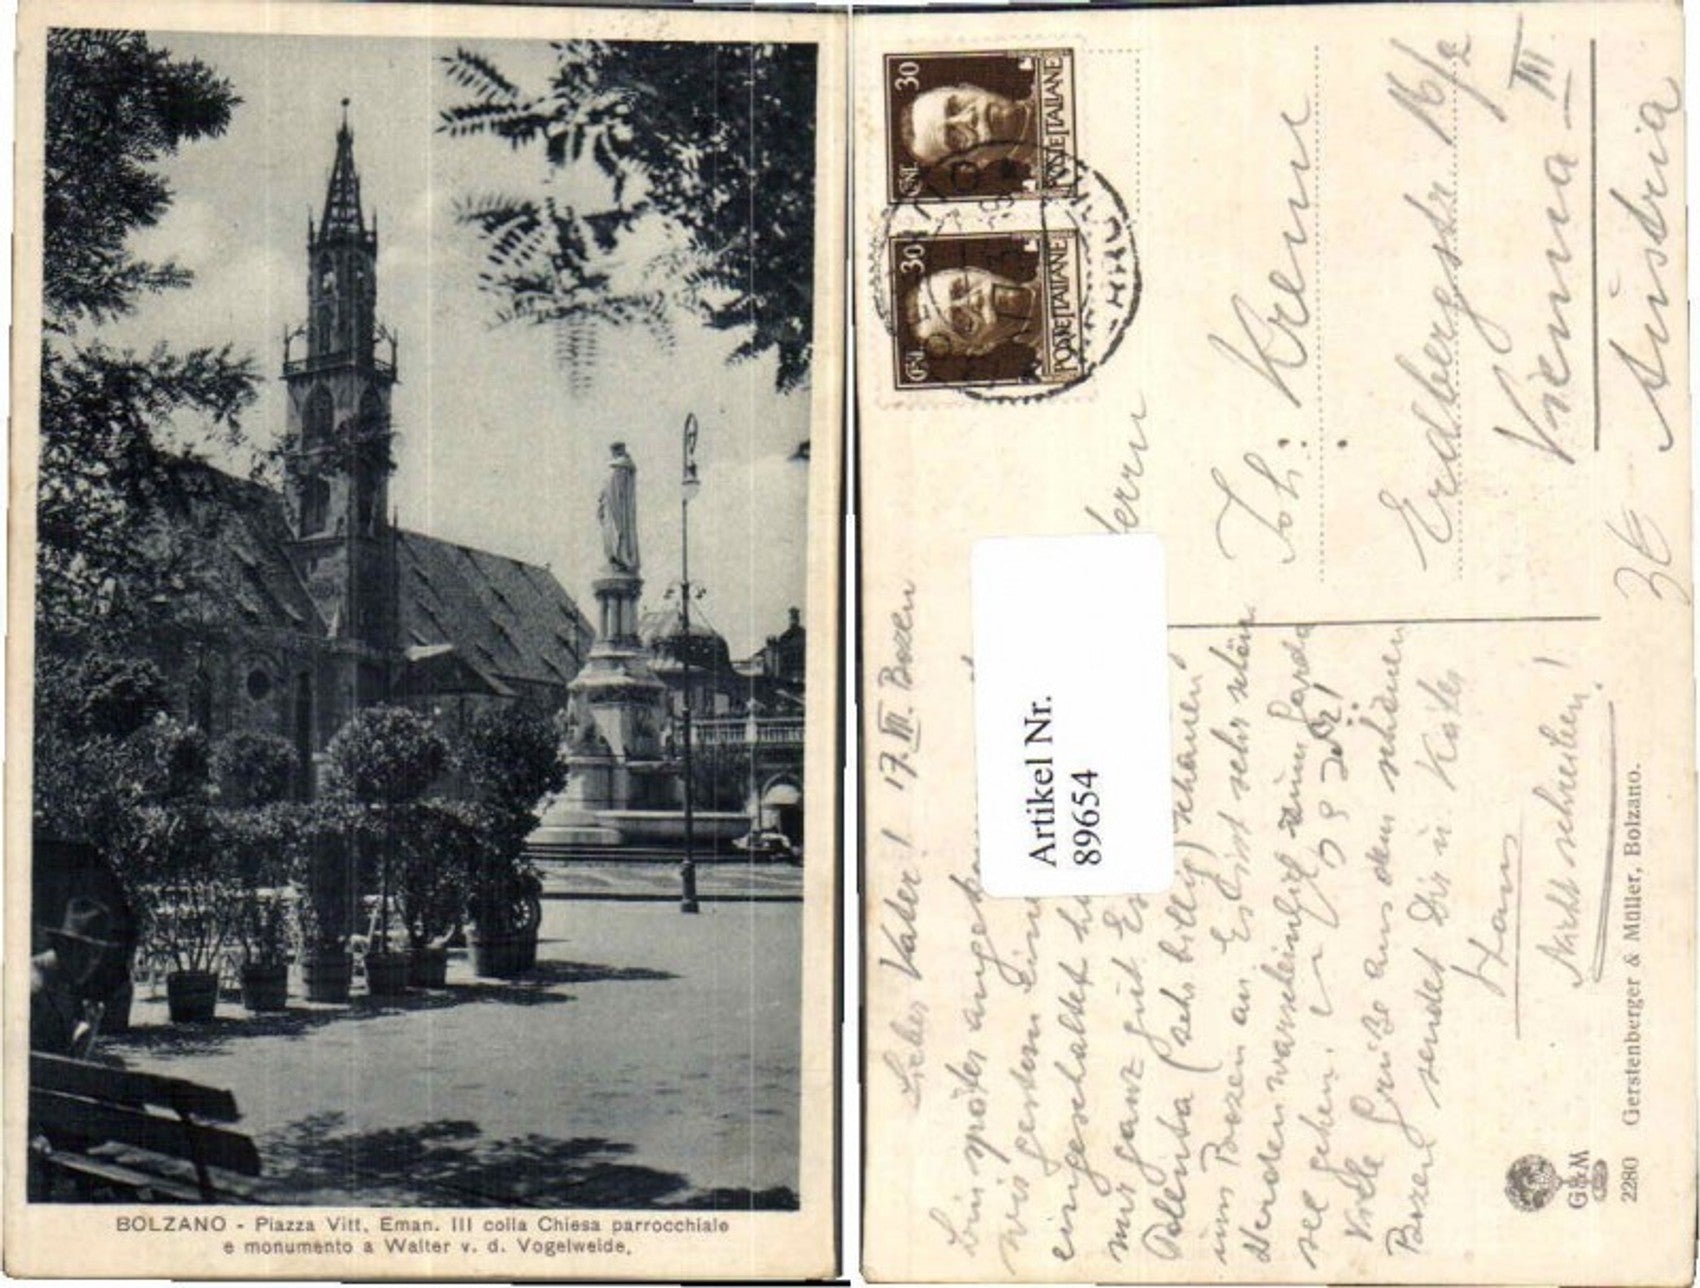 BOLZANO - Piazza Vitt. Eman. III colla Chiesa parrocchiale
e monumento a Walter v. d. Vogelweide.
30
CENT.
POSTE ITALIANE
30
CENT.
POSTE ITALIANE
Herrn
Joh: Krenn
Erdbergstr. 16/2
Vienna III
Austria
3€
Artikel Nr.
896654
Lieber Vater! 17. VII. Bozen
bin später
wir gestern
eingeschaltet
mir ganz gut. Es
Polenta (sehr billig) schönen
im Bozen an. Es ist sehr schön
Werden warscheinlich zum Garda
see gehen.
Viele Grüße aus dem schönen
Bozen sendet Dir u. Käthe
Hans
Nicht schreiben!
G&M
2280 Gerstenberger & Müller, Bolzano.